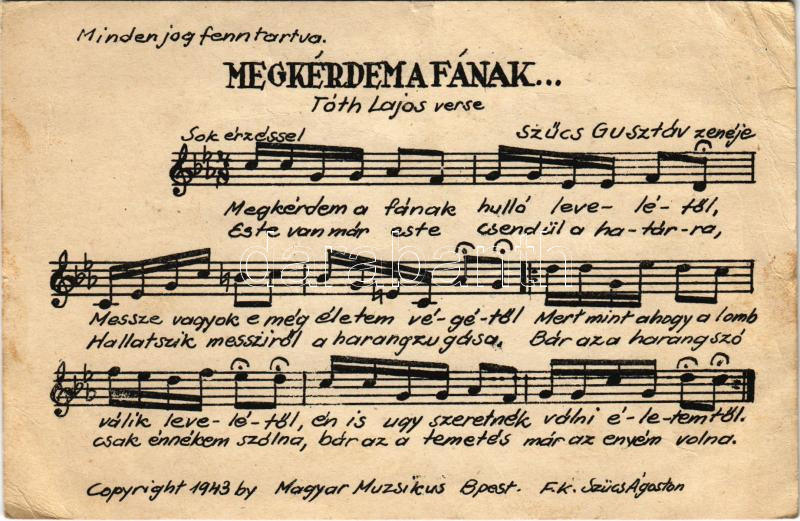 Minden jog fenntartva.
MEGKÉRDEM A FÁNAK...
Tóth Lajos verse
Sok érzéssel
Szűcs Gusztáv zenéje
Megkérdem a fának hulló leve-lé-től,
Este van már este csendül a ha-tár-ra,
darabanth
Messze vagyok e még életem vé-gé-től Mert mint ahogy a lomb
Hallatszik messziről a harangzugása, Bár az a harangszó
válik leve-lé-től, én is ugy szeretnék válni é-le-temtől.
csak énnékem szólna, bár az a temetés már az enyém volna.
Copyright 1943 by Magyar Muzsikus Bpest. F.K. Szücs Ágoston